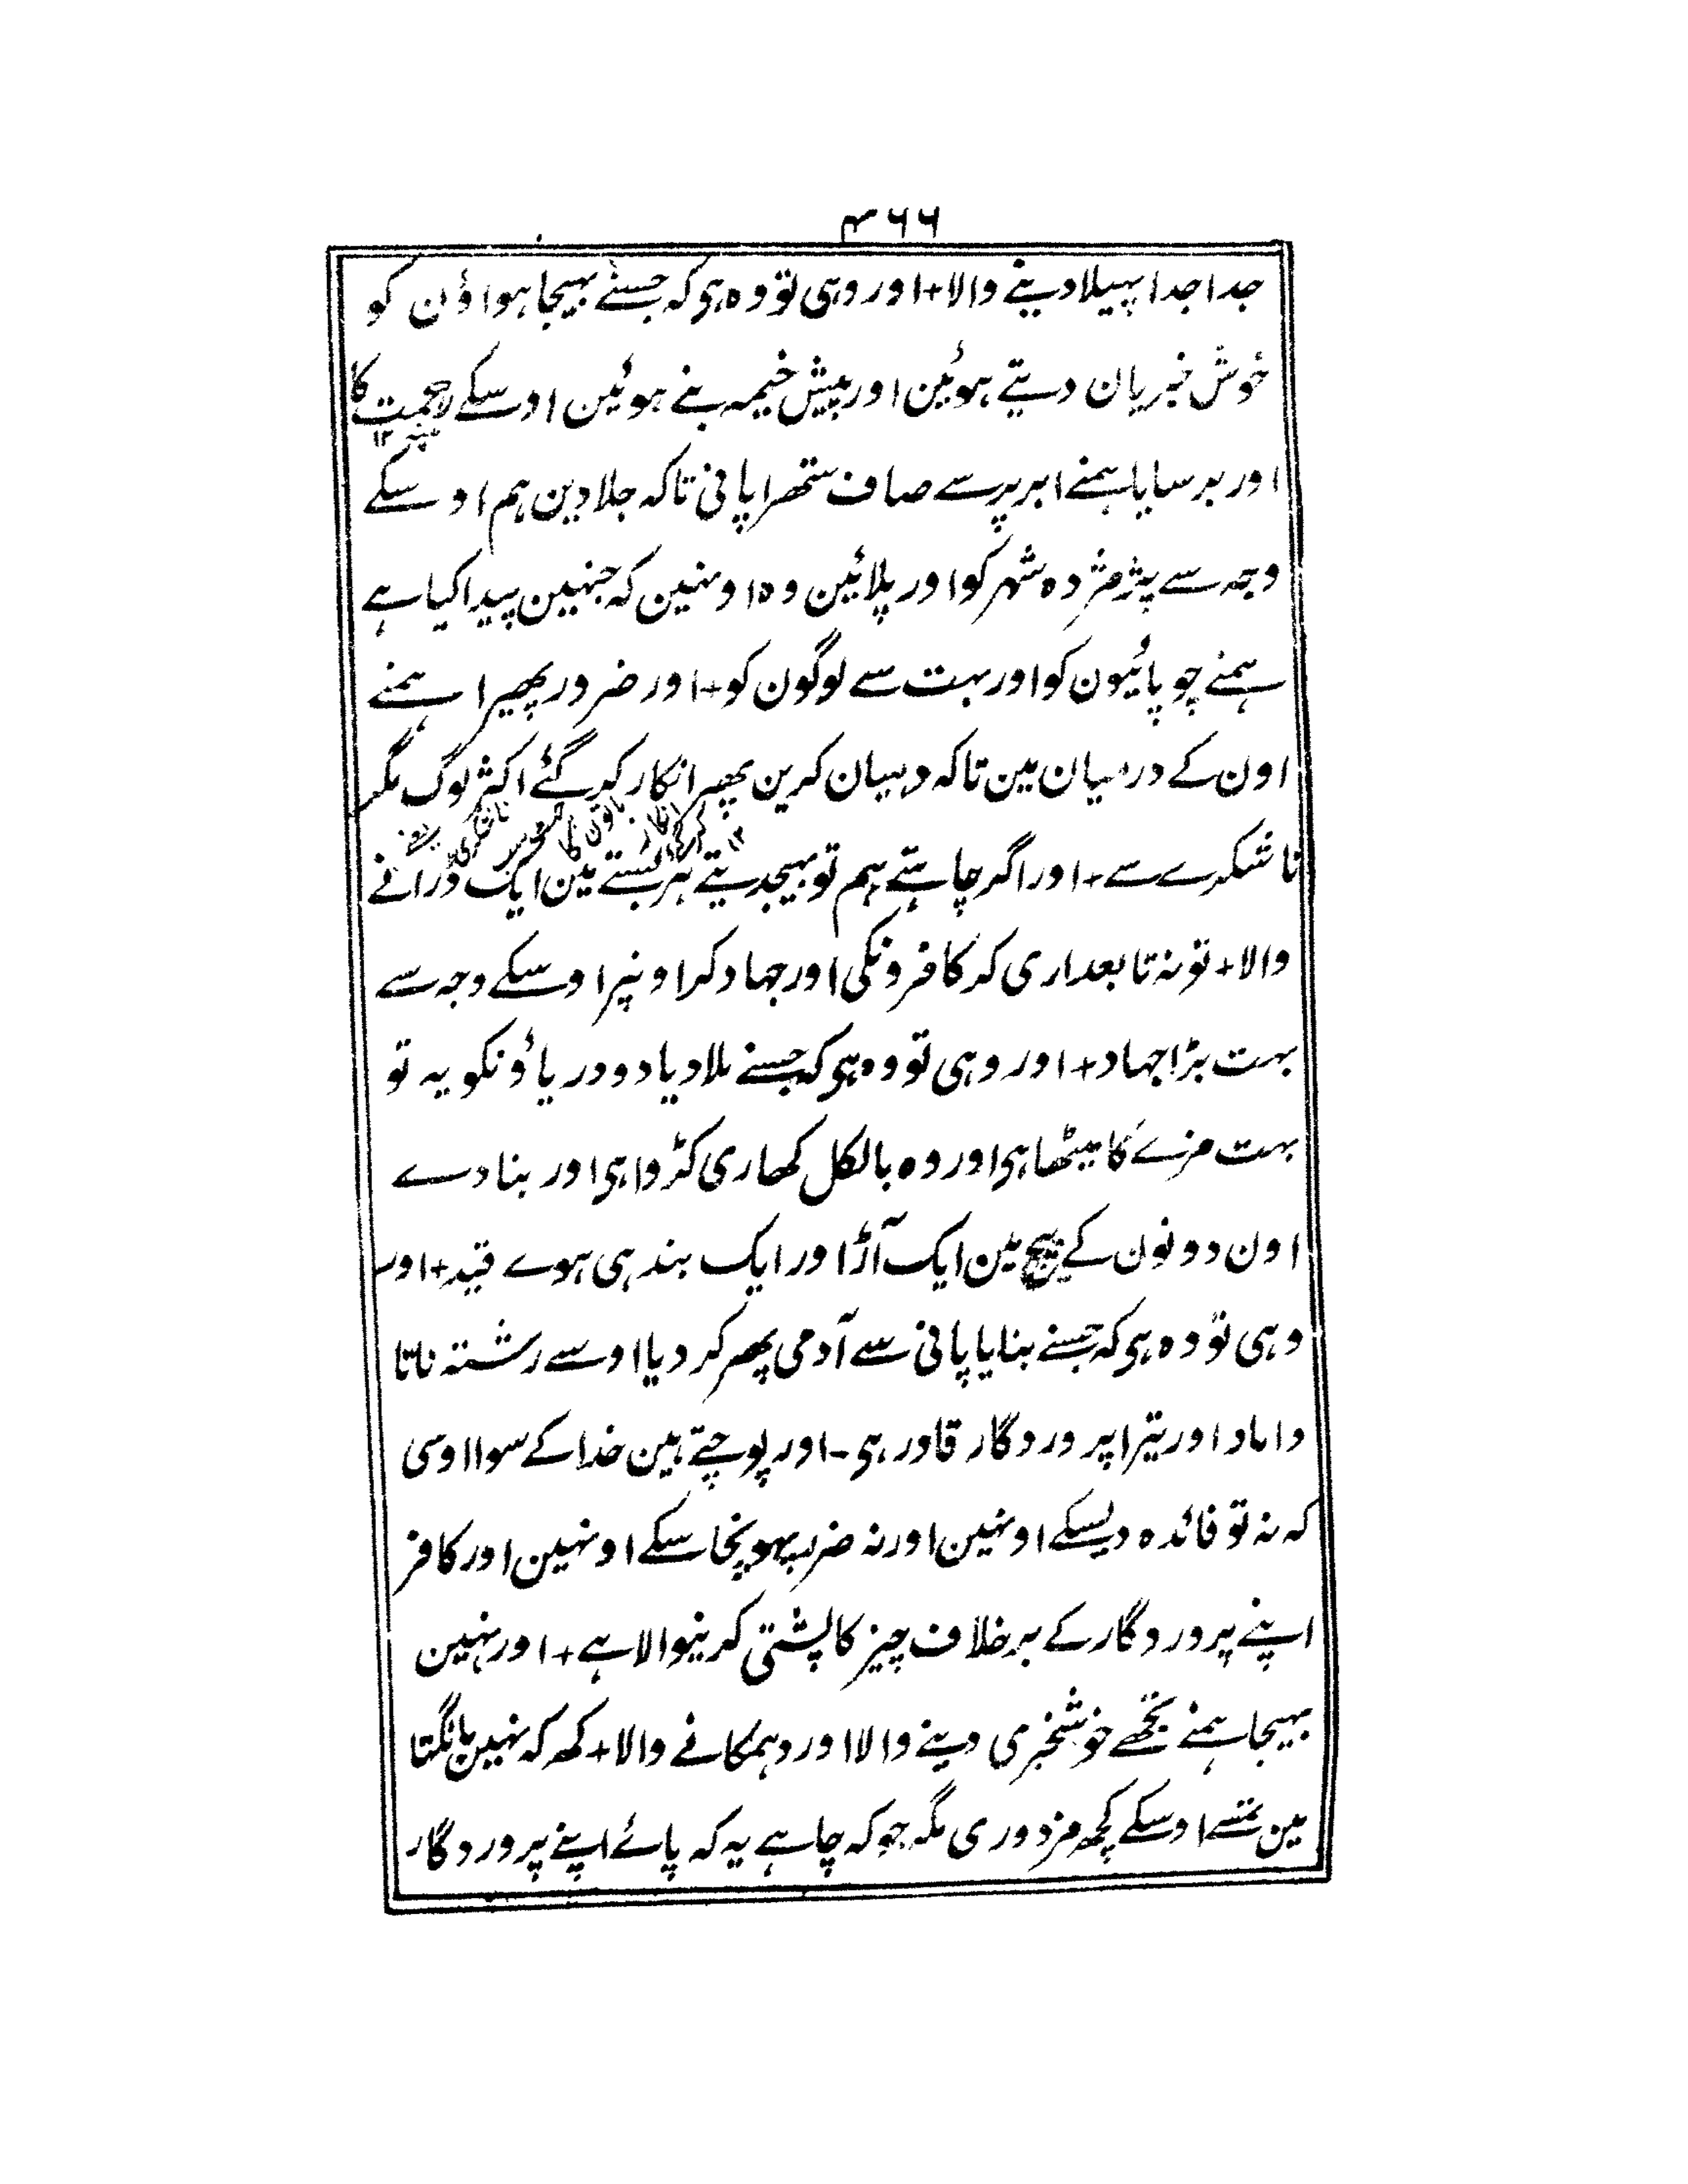 ۴۶۶
جدا جدا پہیلا دینے والا + اور وہی تو وہ ہی کہ جسنے بہیجا ہواؤن کو
خوش خبریان دیتے ہوئین اور پیش خیمہ بنے ہوئین اوسکے رحمت کا
مینہ ۱۲
اور برسایا ہمنے ابر پر سے صاف ستھرا پانی تاکہ جلا دین ہم اوسکے
وجہ سے پژمژدہ شہر کو اور پلائین وہ اونہین کہ جنہین پیدا کیا ہے
ہمنے چوپائیون کو اور بہت سے لوگون کو + اور ضرور پھیرا ہمنے
اون کے درمیان مین تاکہ دہیان کرین پھر انکار کر گئے اکثر لوگ مگر
ناشکرے سے + اور اگر چاہتے ہم تو بہیجدیتے ہر بستے مین ایک ڈرانے
والا + تو نہ تابعداری کر کافرونکی اور جہاد کر اونپر اوسکے وجہ سے
بہت بڑا جہاد + اور وہی تو وہ ہی کہ جسنے ملا دیا دو دریاؤنکو یہ تو
بہت مزے کا میٹھا ہی اور وہ بالکل کھاری کڑوا ہی اور بنا دے
اون دونون کے بیچ مین ایک آڑ اور ایک بندہی ہوے قید + اور
وہی تو وہ ہی کہ جسنے بنایا پانی سے آدمی پھر کر دیا اوسے رشتہ ناتا
داماد اور تیرا پروردگار قادر ہی - اور پوجتے ہین خدا کے سوا اوسی
کہ نہ تو فائدہ دیسکے اونہین اور نہ ضرر پہونچا سکے اونہین اور کافر
اپنے پروردگار کے برخلاف چیز کا پشتی کرینوالا ہے + اور نہین
بہیجا ہمنے تجھے خوشخبری دینے والا اور دہمکانے والا + کھہ کہ نہین مانگتا
مین تمسے اوسکے کچھ مزدوری مگر جو کہ چاہے یہ کہ پائے اپنے پروردگار